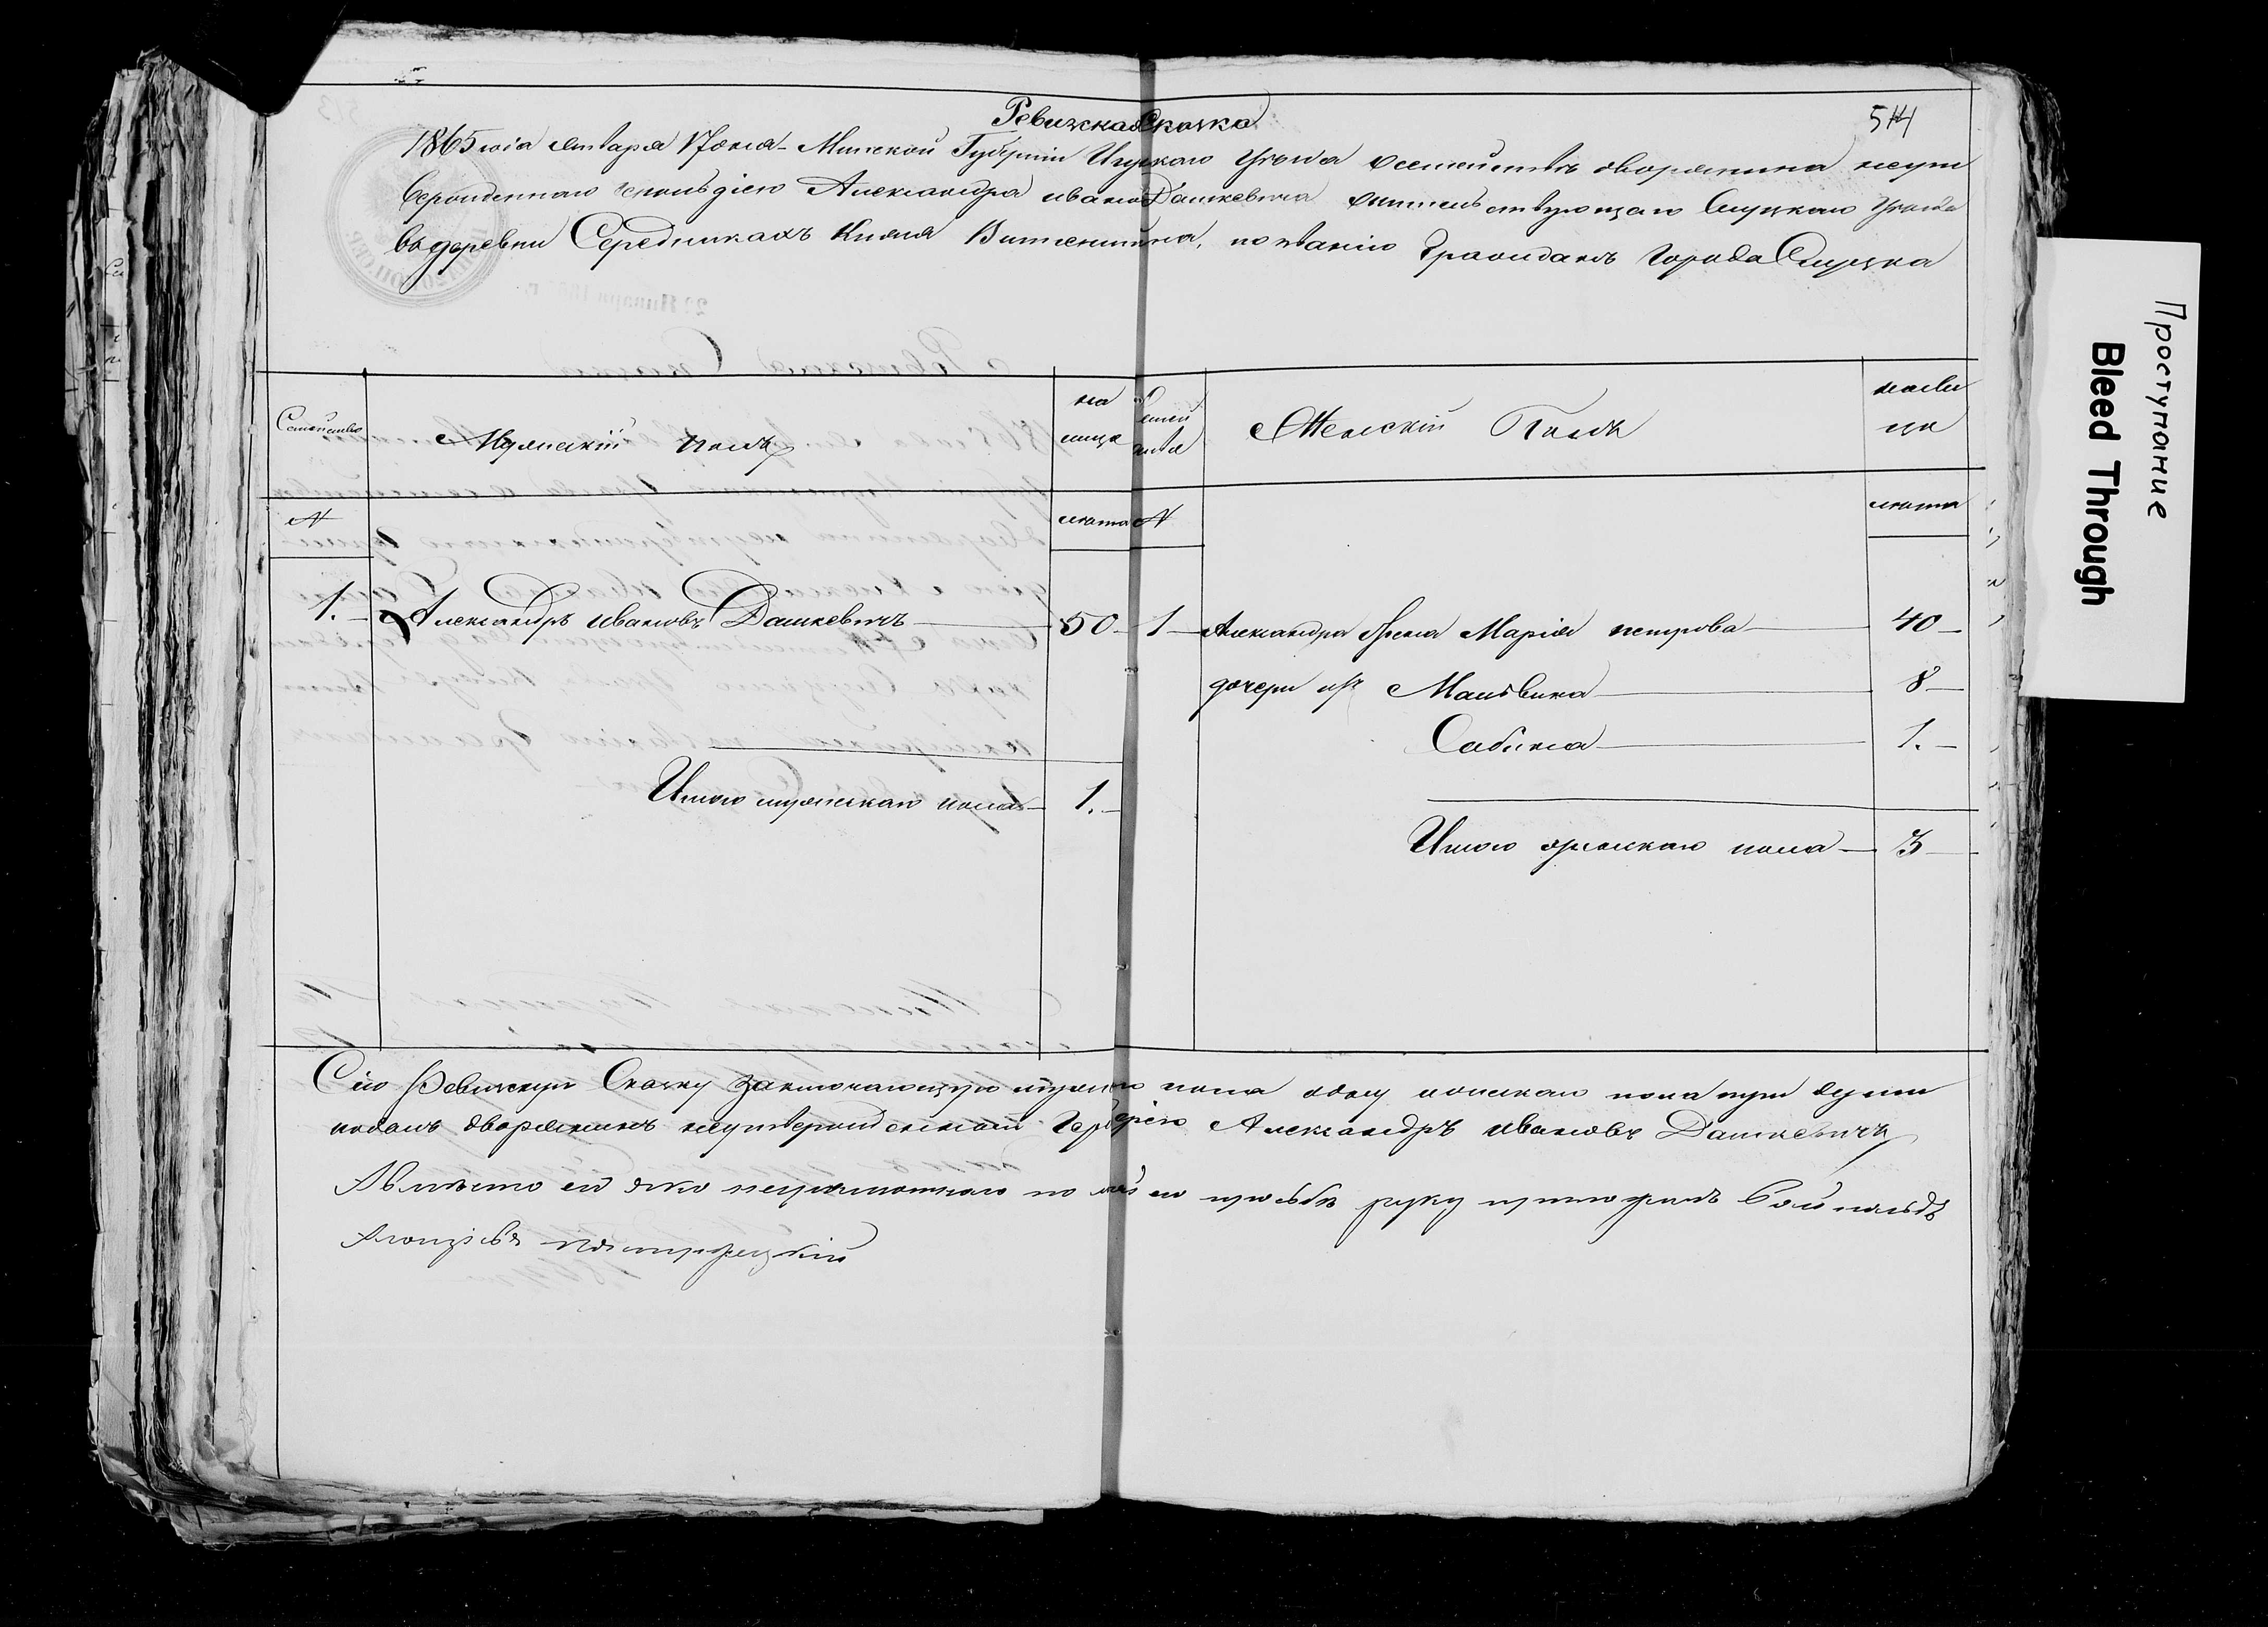 Ревизская Сказка
514
1865 года января 17 дня Минской Губернии Слуцкаго Уезда о семействе дворянина неут
вержденнаго Александра иванова Дашкевича жительствующаго Слуцкаго Уезда
въ деревни Середникахъ Князя Витгенштейна, по званію Гражданъ Города Слуцка
Семейство
Мужескій полъ
на
лицо
Семей
ства
Женскій Полъ
налы
цо
№
лета
№
лета
1. Александръ ивановъ Дашкевичъ 50 1 Александра жена Марія петрова 40
дочери их Мальвина 8
Сабина 1.
Итого мужескаго пола 1.
Итого женскаго пола 3
Сію Ревизскую Сказку заключающую мужеска пола одну женскаго пола три души
подалъ дворянинъ неутвержденный Александръ ивановъ Дашкевичъ
А вместо его яко неграмотнаго по его прозьбе руку приложилъ
Проступание
Bleed Through